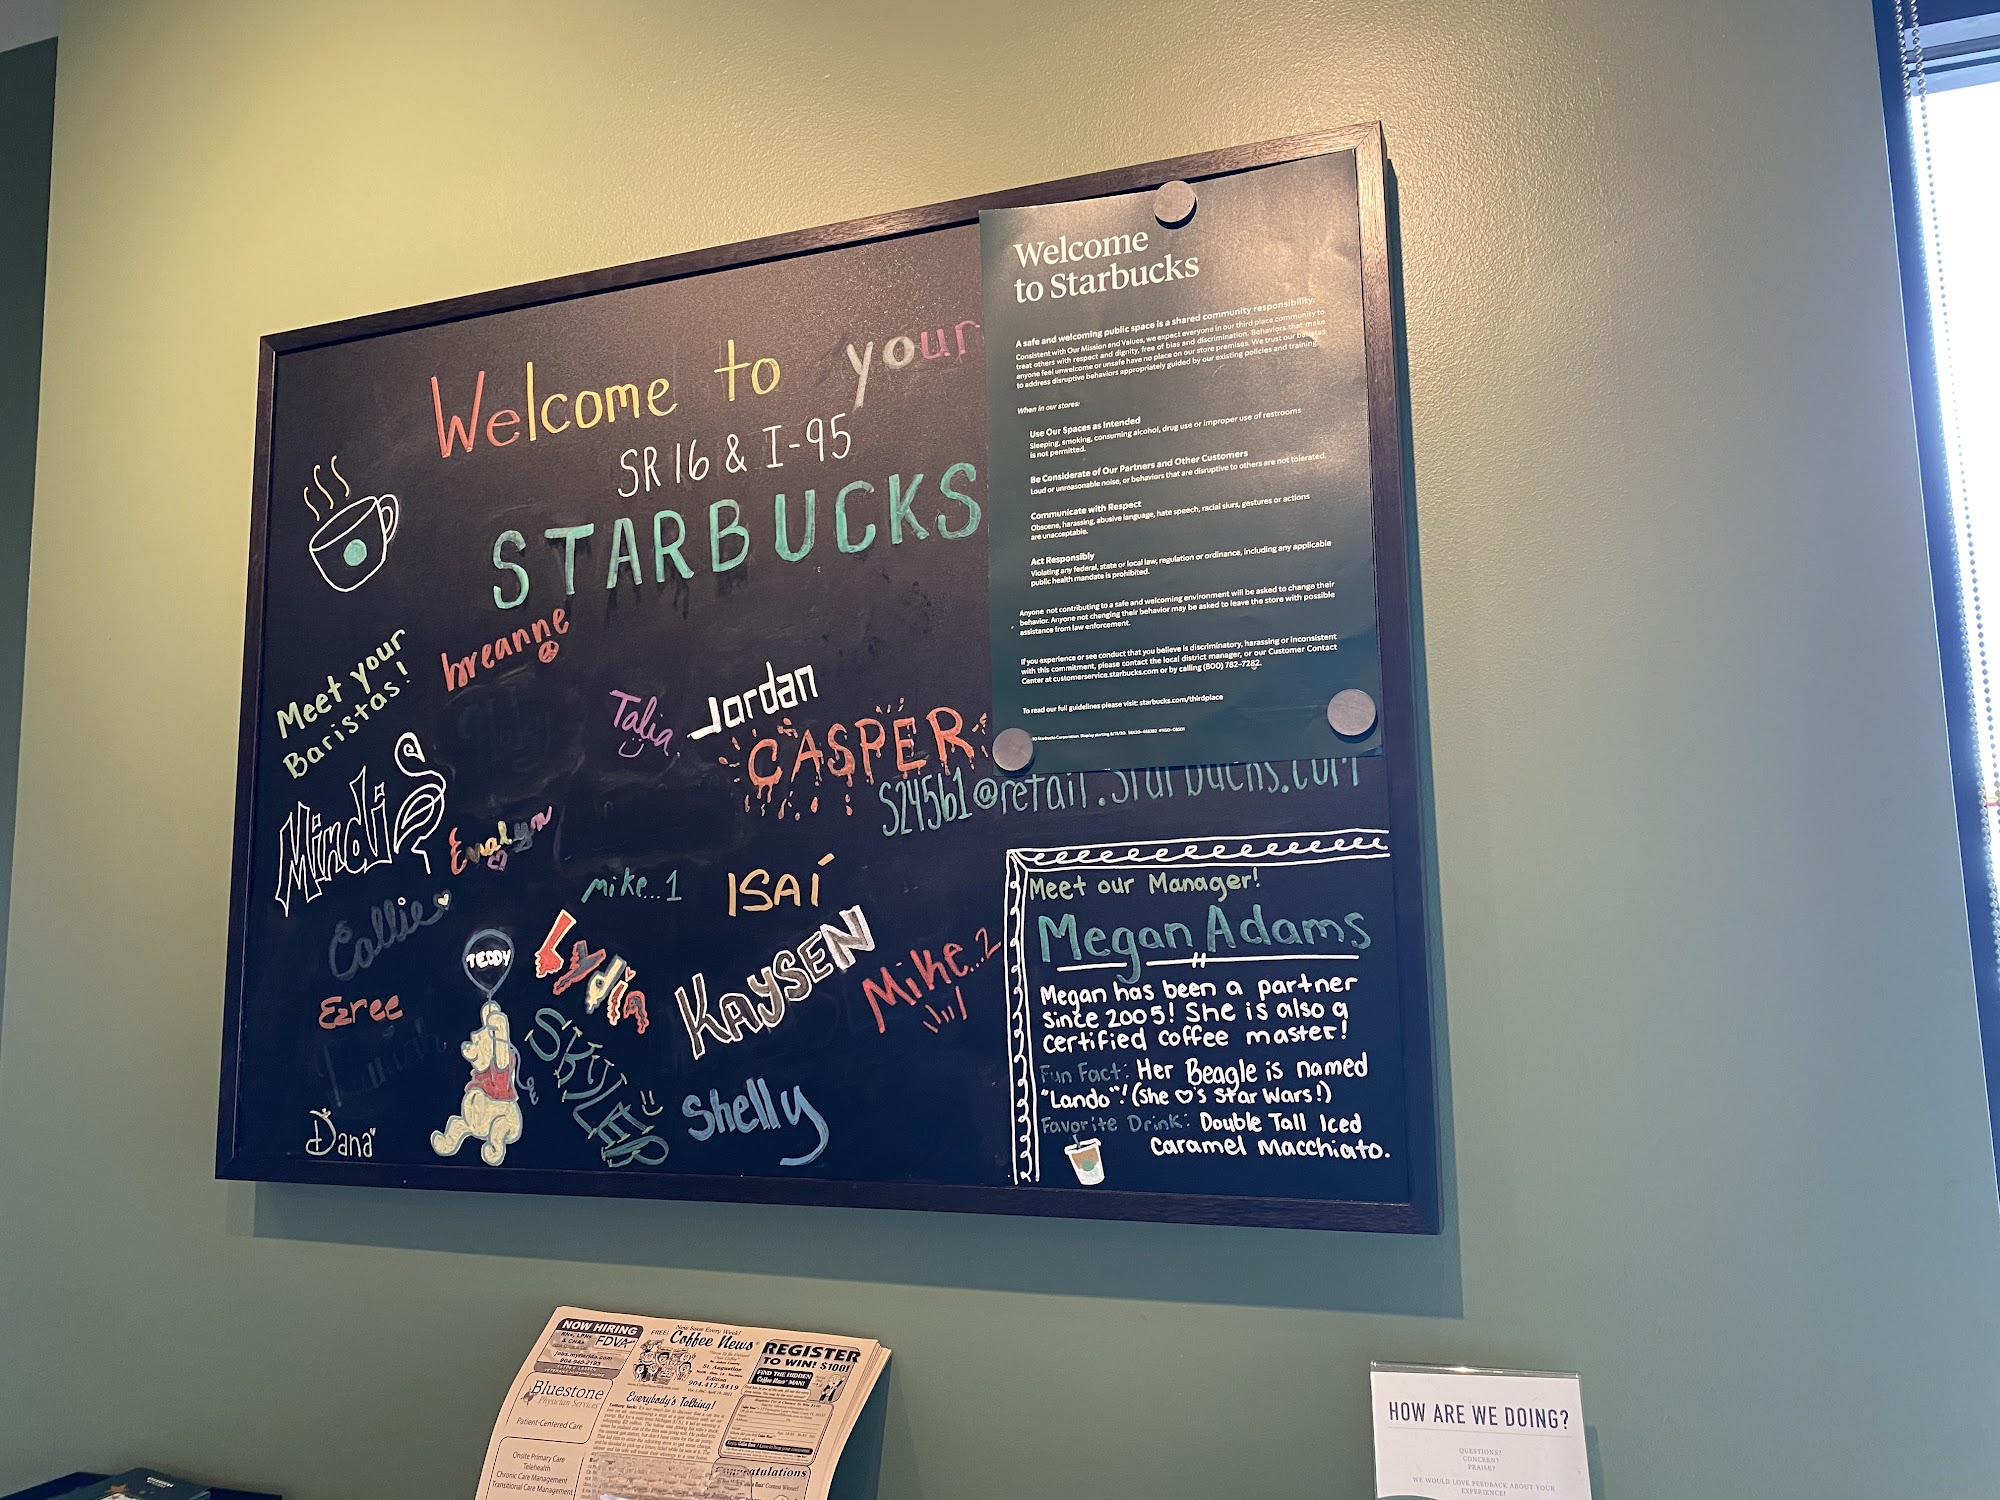 Welcome to your
SR 16 & I-95
STARBUCKS
Meet your
Baristas!
breanne
Talia
Jordan
CASPER
Mindi
Evalyn
Callie
mike...1
ISAÍ
TEDDY
Lydia
KAYSEN
Mike...2
Ezree
SKYLER
Shelly
Dana
S24561@retail.Starbucks.com
Meet our Manager!
Megan Adams
Megan has been a partner
since 2005! She is also a
certified coffee master!
Fun Fact: Her Beagle is named
"Lando"! (She ♡'s Star Wars!)
Favorite Drink: Double Tall Iced
Caramel Macchiato.
Welcome
to Starbucks
A safe and welcoming public space is a shared community responsibility.
Consistent with Our Mission and Values, we expect everyone in our third place community to
treat others with respect and dignity, free of bias and discrimination. Behaviors that make
anyone feel unwelcome or unsafe have no place on our store premises. We trust our baristas
to address disruptive behaviors appropriately guided by our existing policies and training.
When in our stores:
Use Our Spaces as Intended
Sleeping, smoking, consuming alcohol, drug use or improper use of restrooms
is not permitted.
Be Considerate of Our Partners and Other Customers
Loud or unreasonable noise, or behaviors that are disruptive to others are not tolerated.
Communicate with Respect
Obscene, harassing, abusive language, hate speech, racial slurs, gestures or actions
are unacceptable.
Act Responsibly
Violating any federal, state or local law, regulation or ordinance, including any applicable
public health mandate is prohibited.
Anyone not contributing to a safe and welcoming environment will be asked to change their
behavior. Anyone not changing their behavior may be asked to leave the store with possible
assistance from law enforcement.
If you experience or see conduct that you believe is discriminatory, harassing or inconsistent
with this commitment, please contact the local district manager, or our Customer Contact
Center at customerservice.starbucks.com or by calling (800) 782-7282.
To read our full guidelines please visit: starbucks.com/thirdplace
Starbucks Corporation. Display starting 8/11/20.
NOW HIRING
RNs, LPNs
& CNAs FDVA
jobs.myflorida.com
904-940-2193
Bluestone
Physician Services
Patient-Centered Care
Onsite Primary Care
Telehealth
Chronic Care Management
Transitional Care Management
New Issue Every Week!
FREE! Coffee News
St. Augustine
Edition
904.417.8419
Everybody's Talking!
REGISTER
TO WIN! $100!
FIND THE HIDDEN
Coffee News MAN!
Congratulations
HOW ARE WE DOING?
QUESTIONS?
CONCERN?
PRAISE?
WE WOULD LOVE FEEDBACK ABOUT YOUR
EXPERIENCE!